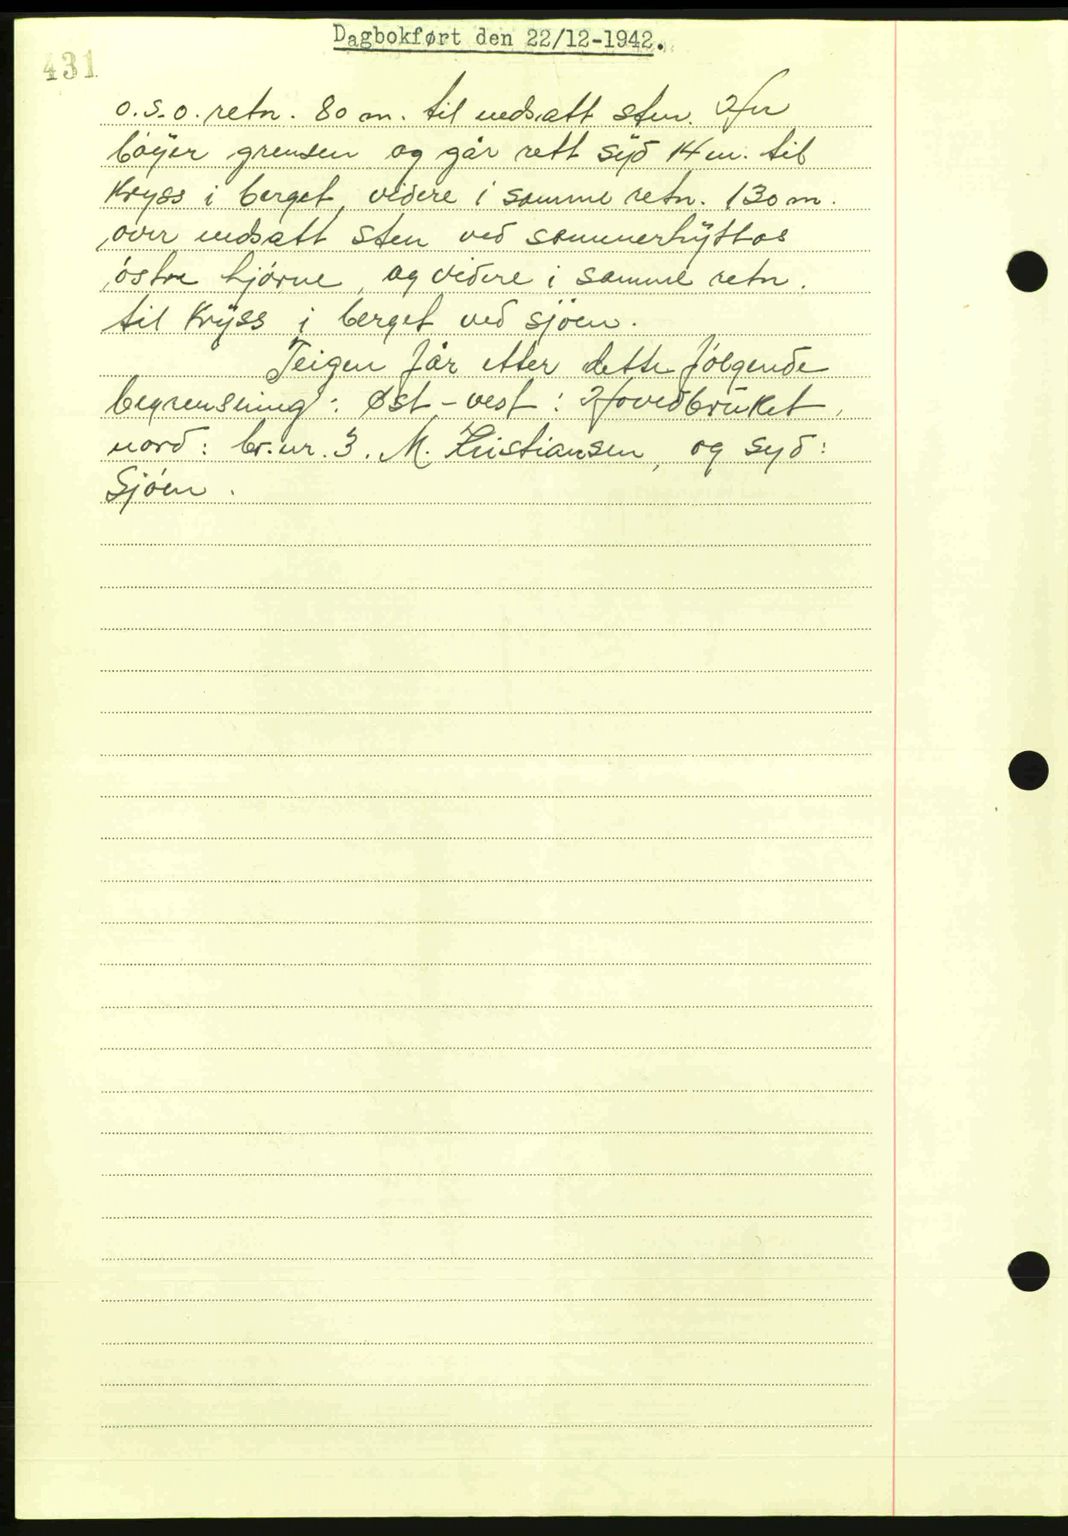 Dagbokført den 22/12-1942.
431
o.s.o. retn. 80 m. til nedsatt sten. Her
bøyer grensen og går rett syd 14 m. til
Kryss i berget, videre i samme retn. 130 m.
over nedsatt sten ved sommerhyttas
østre hjørne, og videre i samme retn.
til Kryss i berget ved sjøen.
Teigen får etter dette følgende
begrensning: Øst-vest: Hovedbruket,
nord: br.nr. 3. M. Kristiansen, og syd:
Sjøen.